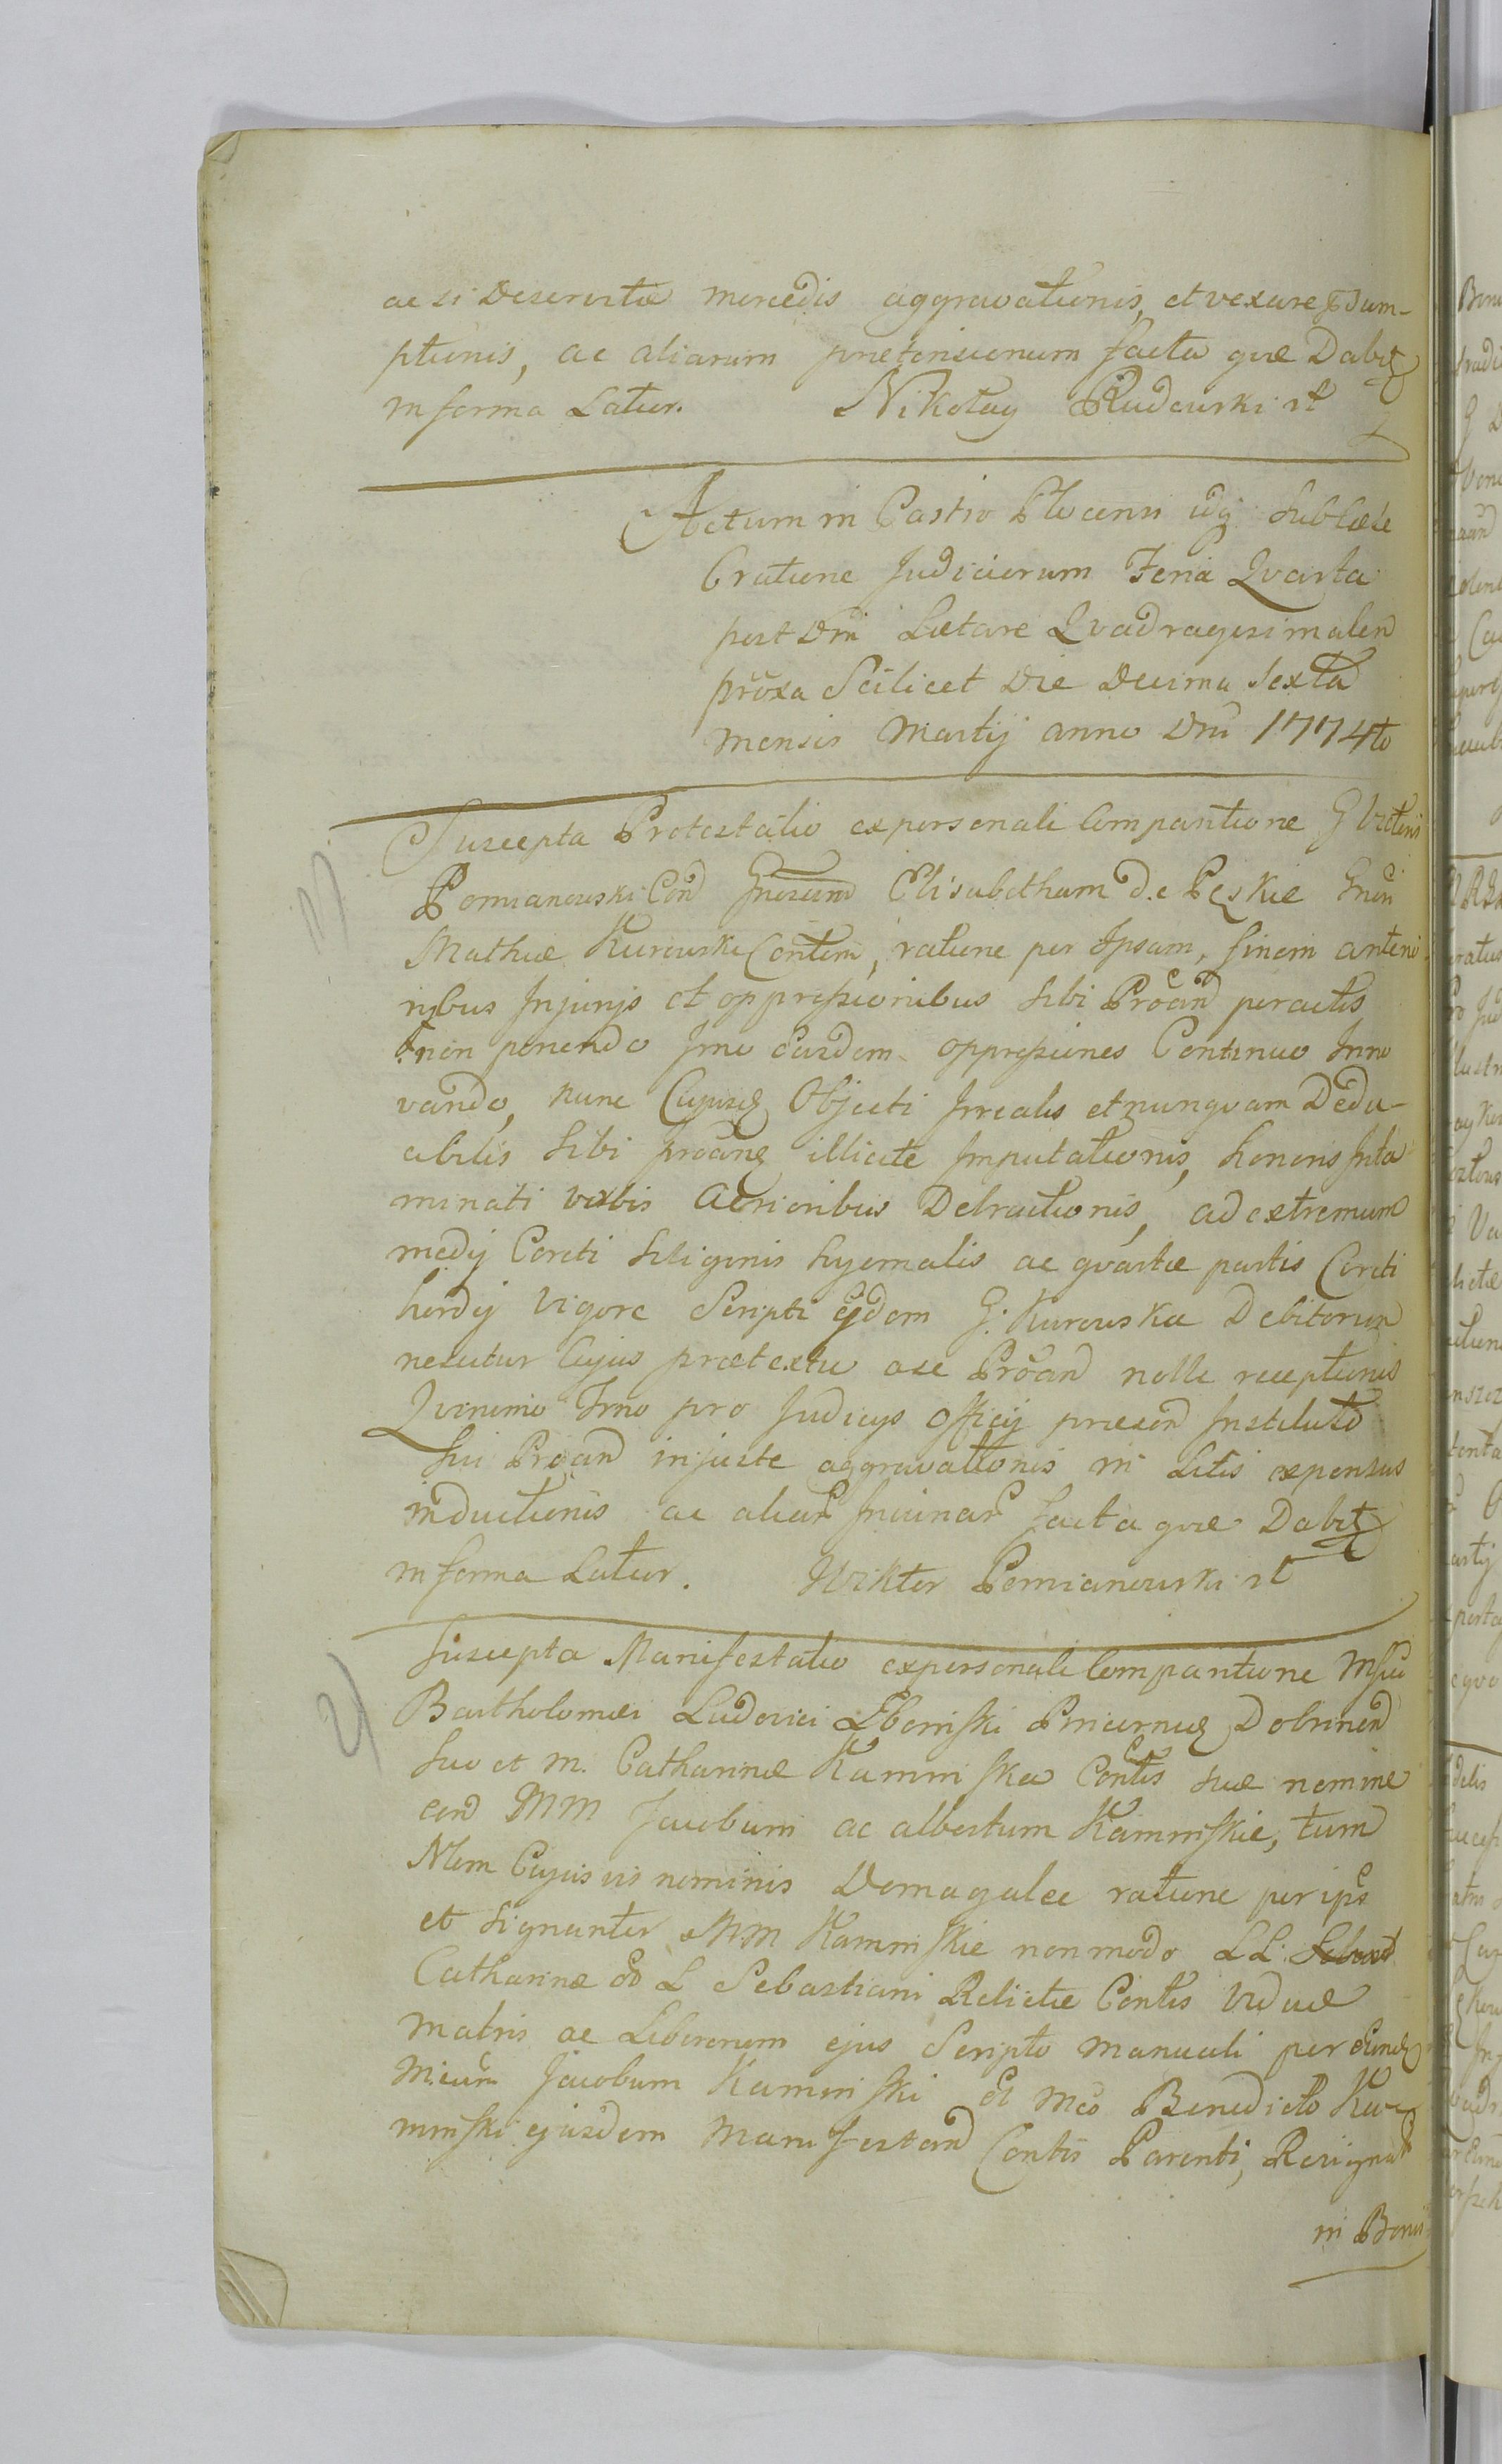 ac si Deservitæ mercedis aggravationis, et vexare Sum-
ptionis, ac aliarum prætensionum facta quæ Dabit
in forma Latior. Nikolay Rudowski st
Actum in Castro Plocensi idq Sublatæ
Cratione Judiciorum Feria Qvarta
post Dni Lætare Qvadragesimalem
proxa Scilicet Die Decima Sexta
mensis Martij anno Dni 1774to
1)
Suscepta Protestatio ex personali Comparitione G Victoris
Pomianowski Con Gnosam Elisabetham de Peskie Gnsi
Mathiæ Kurowski Contem, ratione per Ipsam, finem anterio
ribus Injurijs et oppressionibus sibi Proan peractis
non ponendo Imo easdem oppressiones Continuo Inno
vando, nunc Cujusq Objecti Irrealis et nunqvam Dedu-
cibilis sibi proan illicite Imputationis, honoris Inta
minati verbis Acrioribus Detractionis, ad extremum
medij Coreti Siliginis hyemalis ac qvartæ partis Coreti
hordij vigore Scripti ejdem G. Kurowska Debitorum
nescitur Cujus prætextu a se Proan nolle receptionis
Qvonimo Imo pro Judicys Officij præsen Instituto
Sui Proan injuste aggravationis in Litis expensas
inductionis ac aliar Injuriar facta quæ Dabit
in forma Latior. Wiktor Pomianowski st
2)
Suscepta Manifestatio ex personali Comparitione Mfici
Bartholomæi Ludovici Pincernæ Dobrinen
suo et M. Catharinæ Kaminska Contis suæ nomine
con MM Jacobum ac Albertum Kaminskie, tum
Nlem Cujusvis nominis Domagalce ratione per ips
et signanter MM Kaminskie non modo LL.
Catharinæ L Sebastiani Relictæ Contis Viduæ
Matris ac Liberorum ejus Scripto Manuali per eund
Micum Jacobum Kaminski et Mco Benedicto Ka
minski ejusdem Manifestan Contis Parenti, Resignat
in Bonis